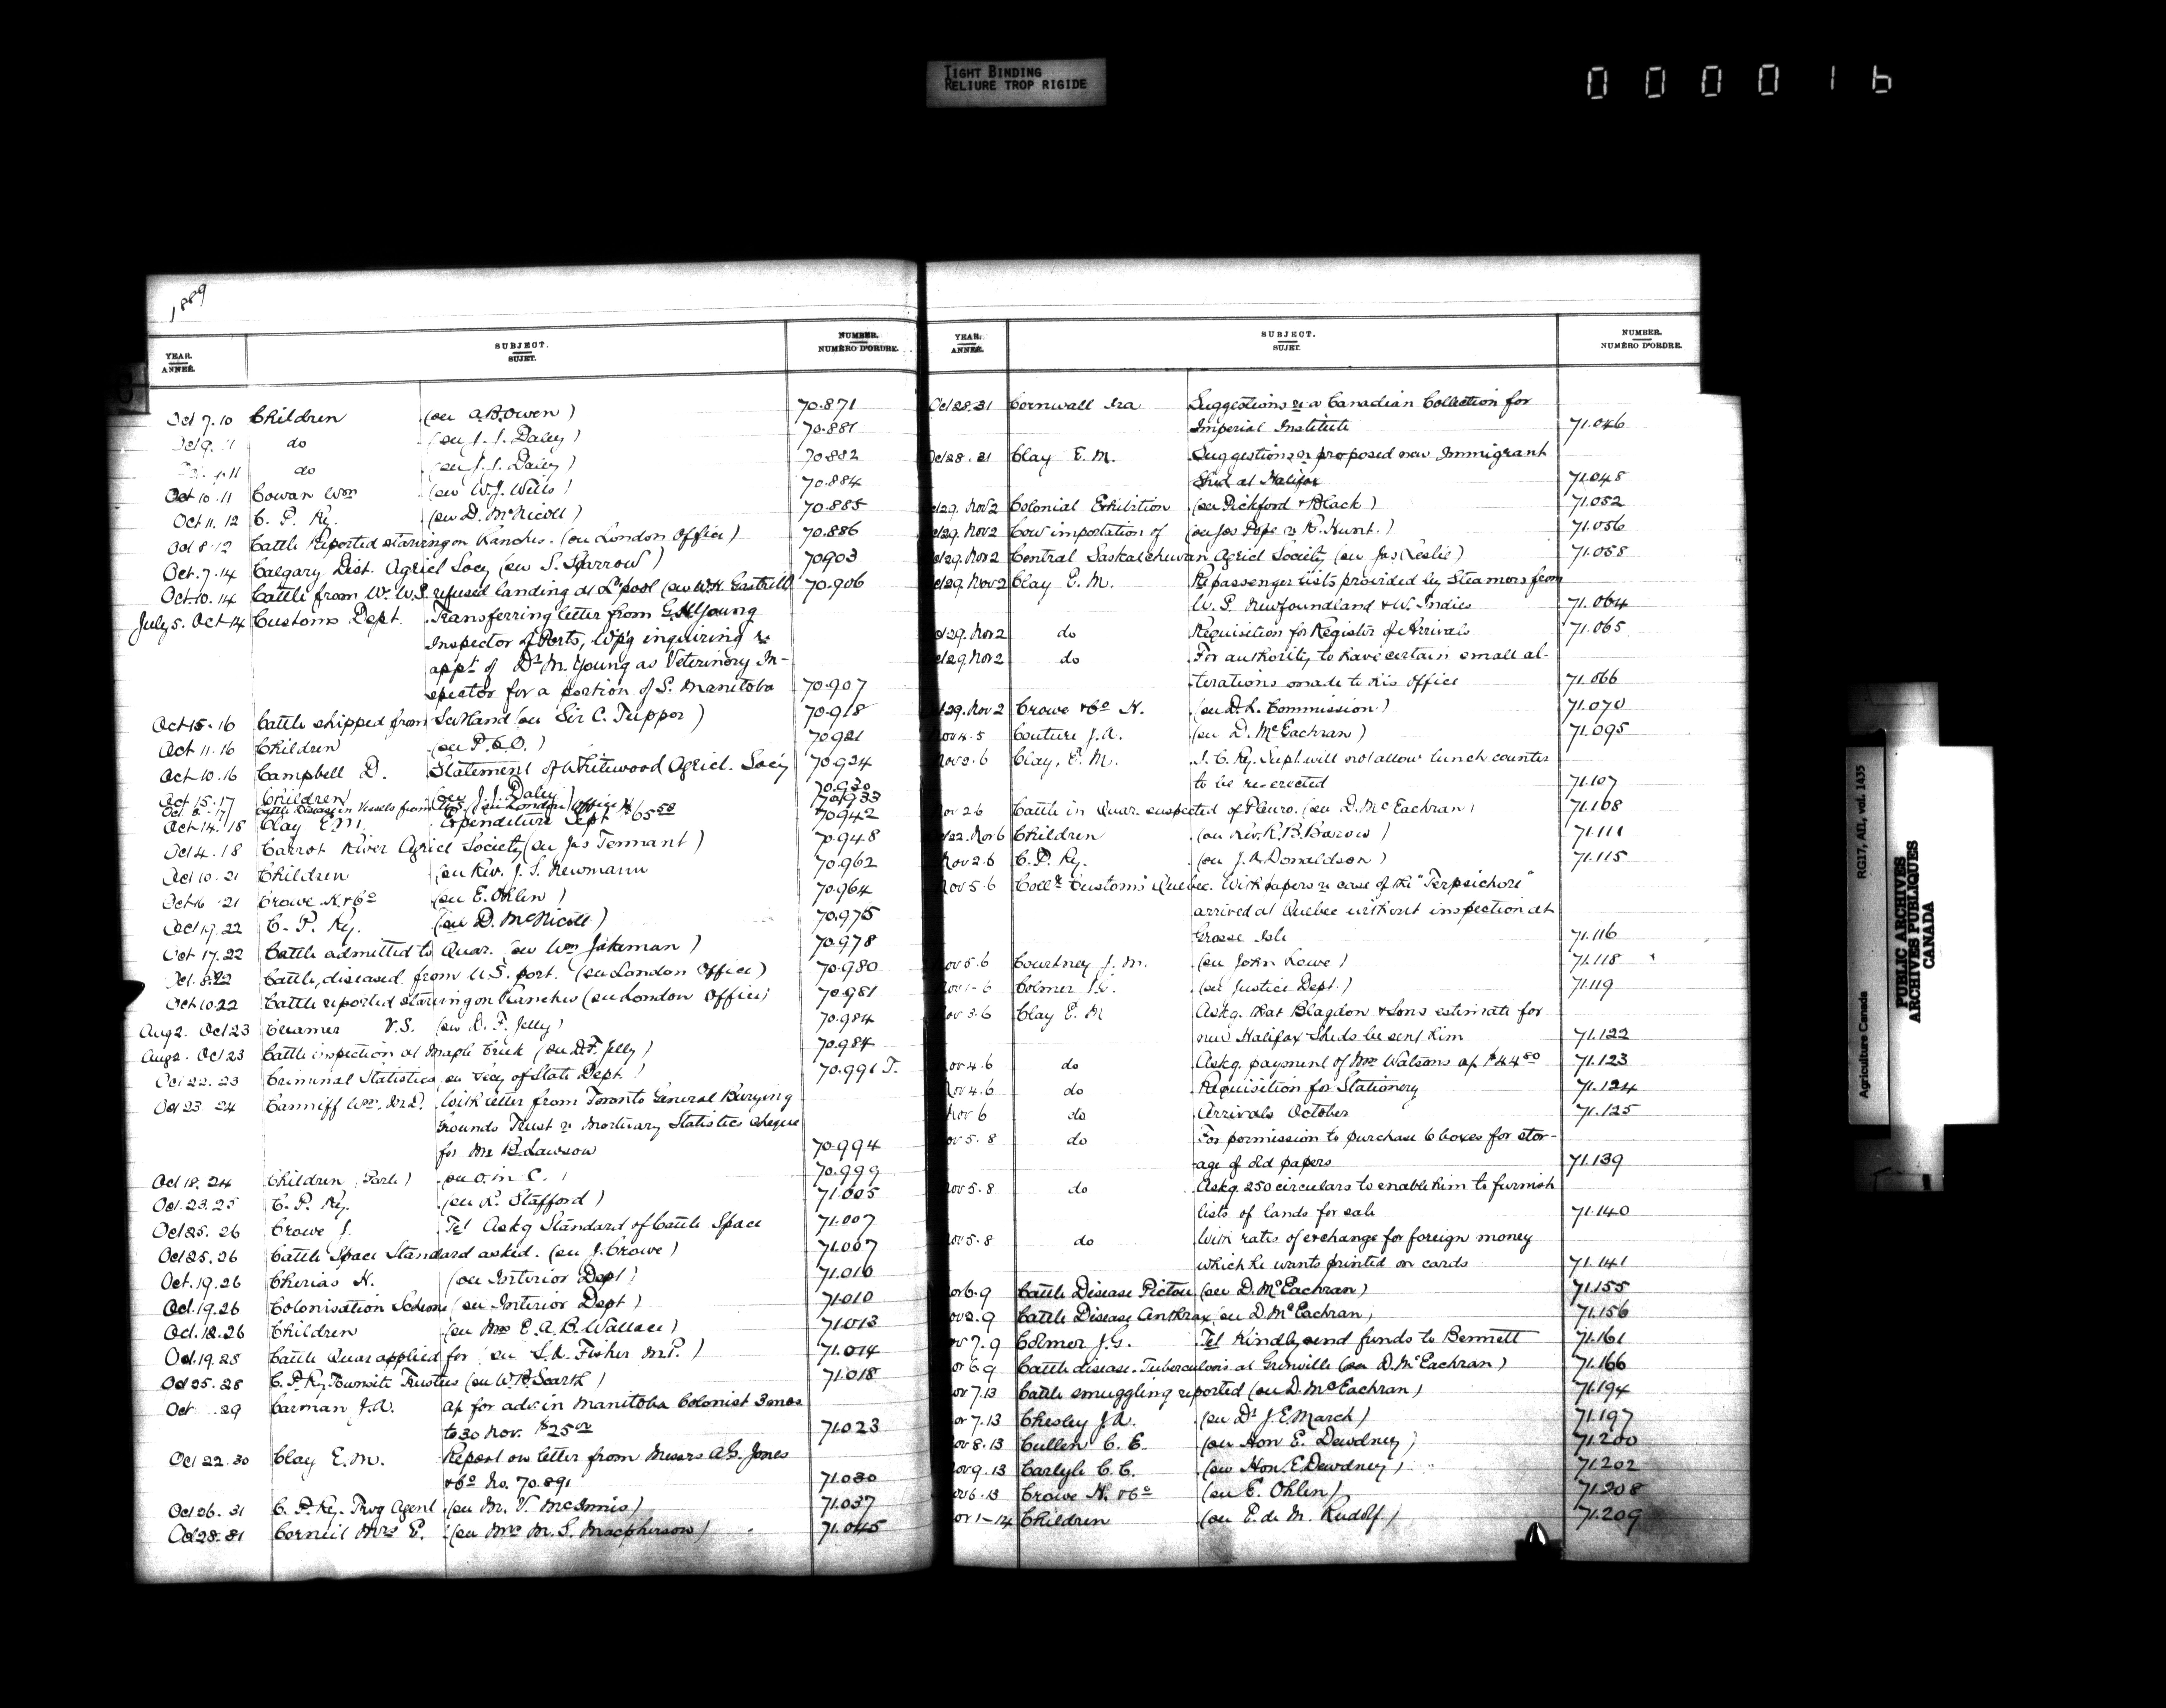 TIGHT BINDING
RELIURE TROP RIGIDE
000016
1889
YEAR. ANNÉE. SUBJECT. SUJET. NUMBER. NUMÉRO D'ORDRE.
Oct 7.10 Children (see A.B. Owen) 70.871
Oct 9. 11 do (see J.J. Daley) 70.881
11 do (see J.J. Daley) 70.882
Oct 10.11 Cowan Wm (see W.J. Wills) 70.884
Oct 11. 12 C. P. Ry. (see D. McNicoll) 70.885
Oct 8.12 Cattle Reported starving on Ranches. (see London Office) 70.886
Oct. 7.14 Calgary Dist. Agricl Socy (see S. Sparrow) 70903
Oct. 10. 14 Cattle from W. U.S. refused landing at L'pool (see W.H. Gastrill 70.906
July 5. Oct 14 Customs Dept. Transferring letter from G.H. Young
Inspector of Ports, Wp'g inquiring re
appt of Dr M. Young as Veterinery In-
spector for a portion of S. Manitoba 70.907
Oct 15. 16 Cattle shipped from Scotland (see Sir C. Tupper) 70.918
Oct 11. 16 Children (see P.C.O.) 70921
Oct 10.16 Campbell D. Statement of Whitewood Agricl. Soc'y 70.924
Oct 15.17 Children (see J.J. Daley) 70.930
Oct 8. 17 Cattle Disease in Vessels from U.S. (see London Office) 70.933
Oct 14. 18 Clay E.M. Expenditure Sept $65.58 70942
Oct 4. 18 Carrot River Agricl Society (see Jas Tennant) 70.948
Oct 10. 21 Children (see Rev. J.S. Newmann 70.962
Oct 16. 21 Crowe H. & Co (see E. Ohlen) 70.964
Oct 19. 22 C. P. Ry. (see D. McNicoll) 70.975
Oct 17. 22 Cattle admitted to Quar. (see Wm Jakeman) 70.978
Oct. 8.22 Cattle, diseased from U.S. port. (see London Office) 70.980
Oct 10.22 Cattle reported starving on Ranches (see London Office) 70.981
Aug 2. Oct 23 Creamer V.S. (see D. F. Jelly) 70.984
Aug 2. Oct 23 Cattle inspection at Maple Creek (see D.F. Jelly) 70.984
Oct 22. 23 Criminal Statistics (see Secy of State Dept.) 70.991 T.
Oct 23. 24 Canniff Wm. M.D. With letter from Toronto General Burying
Grounds Trust re Mortuary Statistics cheque
for Mr B. Lawson 70.994
Oct 18. 24 Children (Parl) (see O. in C.) 70.999
Oct. 23.25 C. P. Ry. (see L. Stafford) 71.005
Oct 25. 26 Crowe J. Tel Askg Standard of Cattle Space 71.007
Oct 25.26 Cattle Space Standard asked. (see J. Crowe) 71.007
Oct. 19.26 Cherias H. (see Interior Dept) 71.010
Oct. 19.26 Colonisation Scheme (see Interior Dept) 71.010
Oct. 18.26 Children (see Mrs E.A.B. Wallace) 71.013
Oct. 19.28 Cattle Quar applied for (see S.A. Fisher M.P.) 71.014
Oct 25. 28 C.P. Ry. Townsite Trustees (see W.B. Scarth) 71.018
Oct 29 Carman J.A. ap for adv. in Manitoba Colonist 3 mos
to 30 Nov. $25.00 71.023
Oct 22.30 Clay E.M. Report on letter from Messrs A.G. Jones
& Co No. 70.891 71.030
Oct 26. 31 C. P. Ry. Trvg Agent (see M. V. McInnis) 71.037
Oct 28.31 Corneil Mrs E. (see Mrs M.S. Macpherson) 71.045
YEAR. ANNÉE. SUBJECT. SUJET. NUMBER. NUMÉRO D'ORDRE.
Oct 28.31 Cornwall Ira Suggestions re a Canadian Collection for
Imperial Institute 71.046
Oct 28. 31 Clay E.M. Suggestions re proposed new Immigrant
Shed at Halifax 71.048
Oct 29. Nov 2 Colonial Exhibition (see Pickford & Black) 71.052
Oct 29. Nov 2 Cow importation of (see Jos Pope re R. Hunt.) 71.056
Oct 29. Nov 2 Central Saskatchewan Agricl Society (see Jas Leslie) 71.058
Oct 29. Nov 2 Clay E.M. Re passenger lists provided by Steamers from
U.S. Newfoundland & W. Indies 71.064
Oct 29. Nov 2 do Requisition for Register of Arrivals 71.065
Oct 29. Nov 2 do For authority to have certain small al-
terations made to his office 71.066
Oct 29. Nov 2 Crowe & Co H. (see D.L. Commission) 71.070
Nov 4.5 Couture J.A. (see D. McEachran) 71.095
Nov 2.6 Clay, E.M. I.C. Ry. Supt. will not allow lunch counter
to be re-erected 71.107
Nov 2 6 Cattle in Quar. suspected of Pleuro. (see D. McEachran) 71.108
Oct 22. Nov 6 Children (see Rev. R.B. Barow) 71.111
Nov 2.6 C.P. Ry. (see J.A. Donaldson) 71.115
Nov 5.6 Collr Customs Quebec. With papers re case of the "Terpsichore"
arrived at Quebec without inspection at
Grosse Isle 71.116
Nov 5.6 Courtney J.M. (see John Lowe) 71.118
Nov 1-6 Colmer J.G. (see Justice Dept.) 71.119
Nov 3.6 Clay E.M Askg. that Blagdon & Sons estimate for
new Halifax Sheds be sent him 71.122
Nov 4.6 do Askg. payment of Mrs Watsons ap $44.80 71.123
Nov 4.6 do Requisition for Stationery 71.124
Nov 6 do Arrivals October 71.125
Nov 5. 8 do For permission to purchase 6 boxes for stor-
age of old papers 71.139
Nov 5. 8 do Askg. 250 circulars to enable him to furnish
lists of lands for sale 71.140
Nov 5.8 do With rates of exchange for foreign money
which he wants printed on cards 71.141
Nov 6.9 Cattle Disease Pictou (see D. McEachran) 71.155
Nov 2.9 Cattle Disease Anthrax (see D McEachran) 71.156
Nov 7.9 Colmer J.G. Tel Kindly send funds to Bennett 71.161
Nov 6.9 Cattle disease. Tuberculosis at Grenville (see D. McEachran) 71.166
Nov 7.13 Cattle smuggling reported (see D. McEachran) 71.194
Nov 7.13 Chesley J.A. (see Dr J.E. March) 71.197
Nov 8.13 Cullen C. E. (see Hon E. Dewdney) 71.200
Nov 9.13 Carlyle C.C. (see Hon. E. Dewdney) 71.202
Nov 6.13 Crowe H. & Co (see E. Ohlen) 71.208
Nov 1-14 Children (see E. de M. Rudolf) 71.209
Agriculture Canada RG17, AII, vol. 1435
PUBLIC ARCHIVES
ARCHIVES PUBLIQUES
CANADA